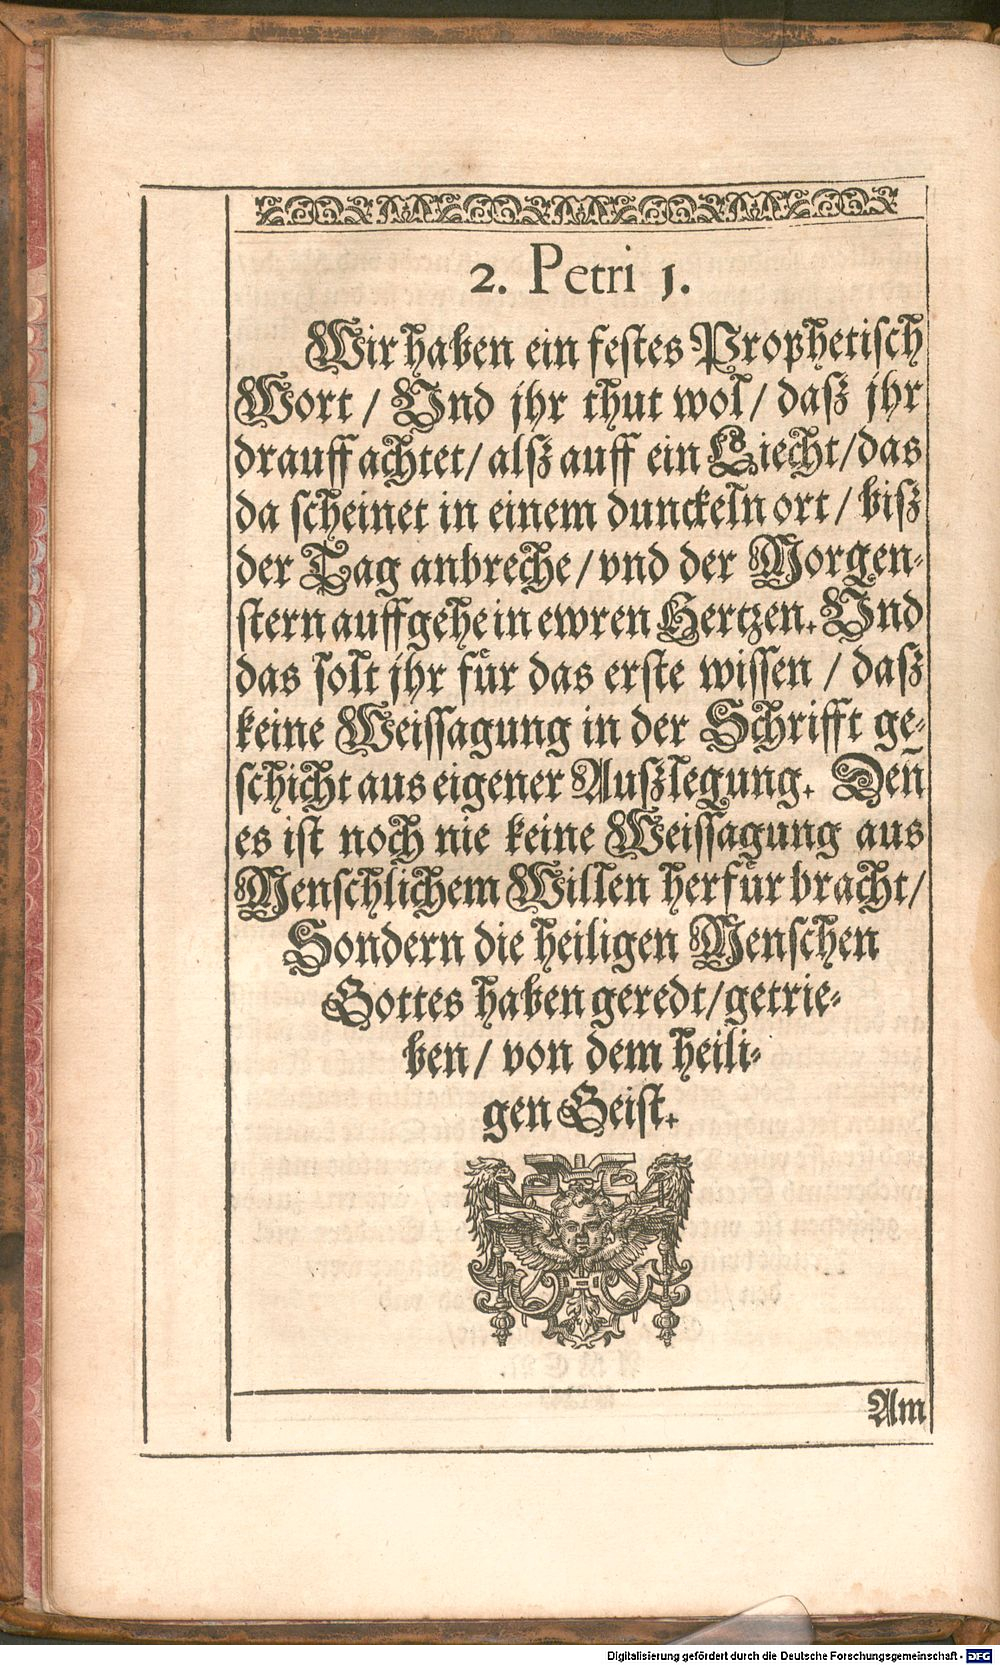 2. Petri 1.
Wir haben ein festes Prophetisch
Wort / Vnd jhr thut wol / dasz jhr
drauff achtet / alsz auff ein Liecht / das
da scheinet in einem dunckeln ort / bisz
der Tag anbreche / vnd der Morgen-
stern auffgehe in ewren Hertzen. Vnd
das solt jhr für das erste wissen / dasz
keine Weissagung in der Schrifft ge-
schicht aus eigener Auszlegung. Deñ
es ist noch nie keine Weissagung aus
Menschlichem Willen herfür bracht /
Sondern die heiligen Menschen
Gottes haben geredt / getrie-
ben / von dem heili-
gen Geist.
Am
Digitalisierung gefördert durch die Deutsche Forschungsgemeinschaft - DFG